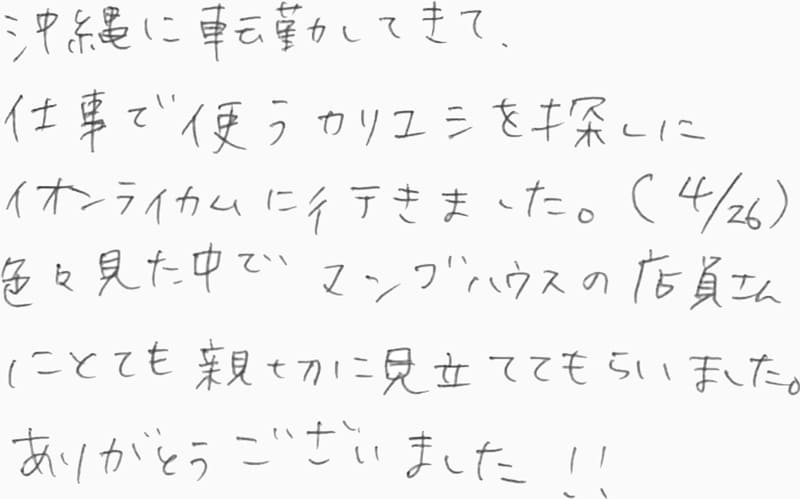 沖縄に転勤してきて、
仕事で使うカリユシを探しに
イオンライカムに行きました。(4/26)
色々見た中で マングハウスの店員さん
にとても親切に見立ててもらいました。
ありがとうございました!!